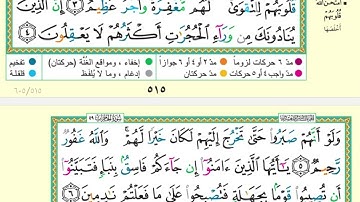 امتحن الله
قلوبهم
أخلصها
قُلُوبَهُمْ لِلتَّقْوَىٰ لَهُم مَّغْفِرَةٌ وَأَجْرٌ عَظِيمٌ ٣ إِنَّ الَّذِينَ
يُنَادُونَكَ مِن وَرَاءِ الْحُجُرَاتِ أَكْثَرُهُمْ لَا يَعْقِلُونَ ٤
مدّ ٦ حركات لزوماً مدّ ٢ أو ٤ أو ٦ جوازاً إخفاء، ومواقع الغُنَّة (حركتان) تفخيم
مدّ واجب ٤ أو ٥ حركات مدّ حركتان إدغام، وما لا يُلفَظ قلقلة
٥١٥
٦٠٥/٥١٥
سورة الحجرات ٤٩
وَلَوْ أَنَّهُمْ صَبَرُوا حَتَّىٰ تَخْرُجَ إِلَيْهِمْ لَكَانَ خَيْرًا لَّهُمْ وَاللَّهُ غَفُورٌ
رَّحِيمٌ ٥ يَا أَيُّهَا الَّذِينَ ءَامَنُوا إِن جَاءَكُمْ فَاسِقٌ بِنَبَإٍ فَتَبَيَّنُوا
أَن تُصِيبُوا قَوْمًا بِجَهَالَةٍ فَتُصْبِحُوا عَلَىٰ مَا فَعَلْتُمْ نَادِمِينَ ٦